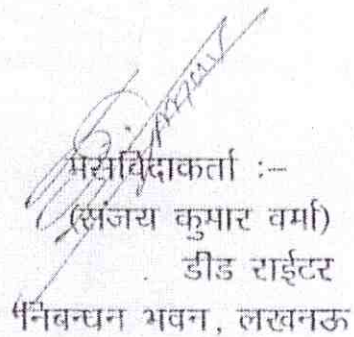 मसविदाकर्ता :–
(संजय कुमार वर्मा)
डीड राईटर
निबन्धन भवन, लखनऊ